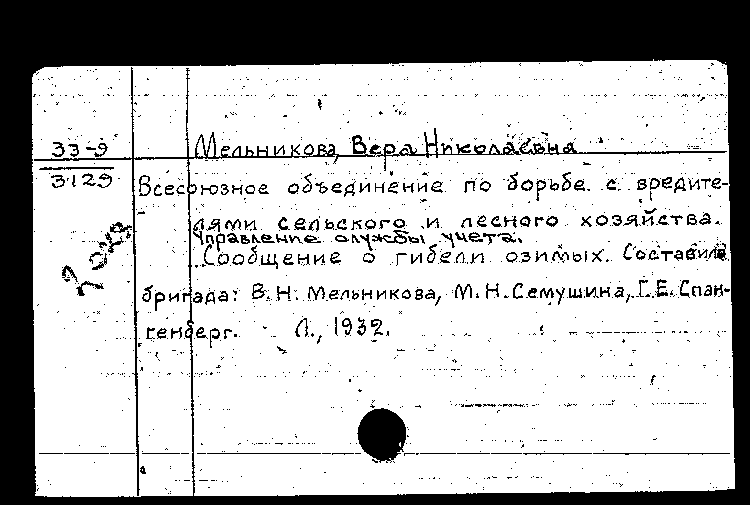 33-9
3129
Мельникова, Вера Николаевна
Всесоюзное объединение по борьбе с вредите-
лями сельского и лесного хозяйства.
Управление службы учета.
Сообщение о гибели озимых. Составила
бригада: В.Н. Мельникова, М.Н. Семушина, Г.Е. Спан-
генберг. Л., 1932.